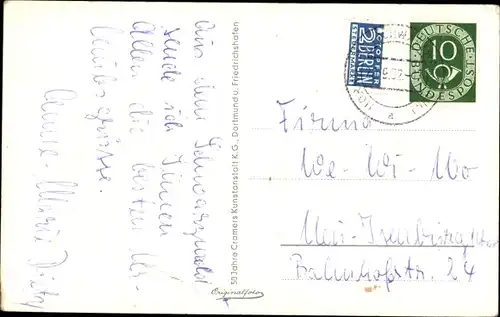 Aus dem Schwarzwald
sende ich Ihnen
Allen die besten Ur-
laubsgrüsse.
Anne-Marie
50 Jahre Cramers Kunstanstalt K.G., Dortmund u. Friedrichshafen
Originalfoto
NOTOPFER
2 BERLIN
STEUERMARKE
DEUTSCHE
BUNDESPOST
10
a
Firma
We-Wi-Wo
Neu-Isenburg
Bahnhofstr. 24